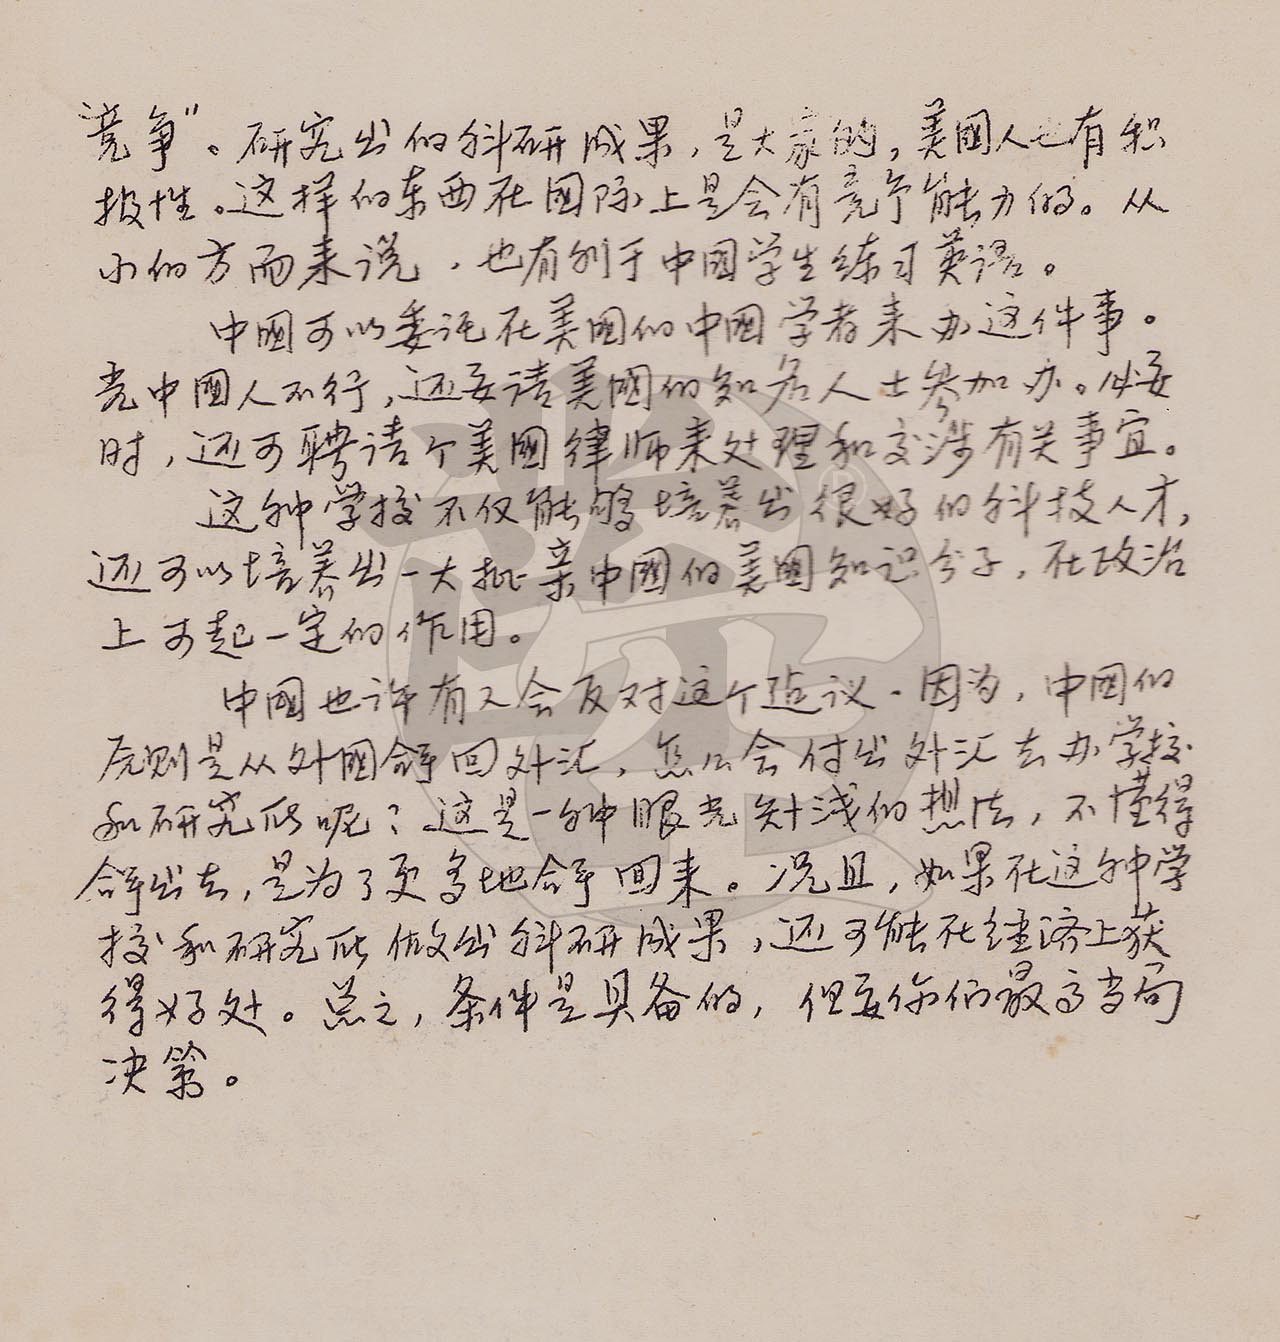 竞争”。研究出的科研成果，是大家的，美國人也有积
极性。这样的东西在國际上是会有竞争能力的。从
小的方面来说，也有利于中國学生练习英语。
中國可以委讬在美國的中國学者来办这件事。
光中國人不行，还要请美國的知名人士参加办。必要
时，还可聘请个美國律师来处理和交涉有关事宜。
这种学校不仅能够培养出很好的科技人才，
还可以培养出一大批亲中國的美國知识分子，在政治
上可起一定的作用。
中國也许有人会反对这个建议。因为，中國的
原则是从外國拿回外汇，怎么会付出外汇去办学校
和研究所呢？这是一种眼光短浅的想法，不懂得
拿出去，是为了更多地拿回来。况且，如果在这种学
校和研究所做出科研成果，还可能在经济上获
得好处。总之，条件是具备的，但要你们最高当局
决策。